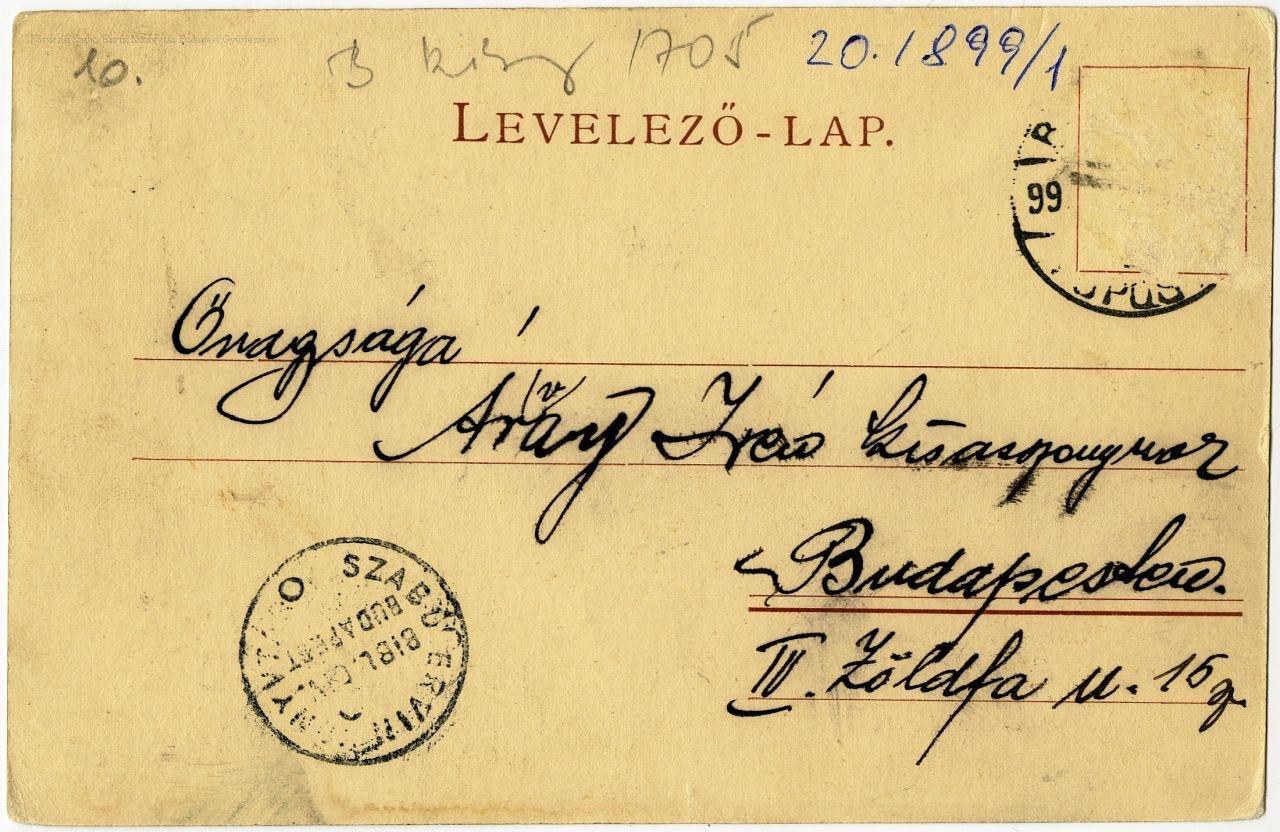 Fővárosi Szabó Ervin Könyvtár Budapest Gyűjtemény
10.
B 1705
20.1899/1
LEVELEZŐ-LAP.
99
Őnagysága
Irén kisasszonynak
Budapesten.
IV. Zöldfa u. 15
SZABÓ ERVIN
BIBL. CIV.
BUDAPEST